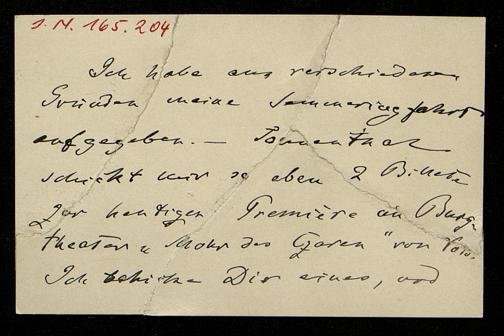 J. N. 165.204
Ich habe aus verschiedenen
Gründen meine Semmeringfahrt
aufgegeben. — Sonnenthal
schickt mir so eben 2 Billete
zur heutigen Première im Burg-
theater „Mohr des Czaren" von Voss.
Ich schicke Dir eines, und